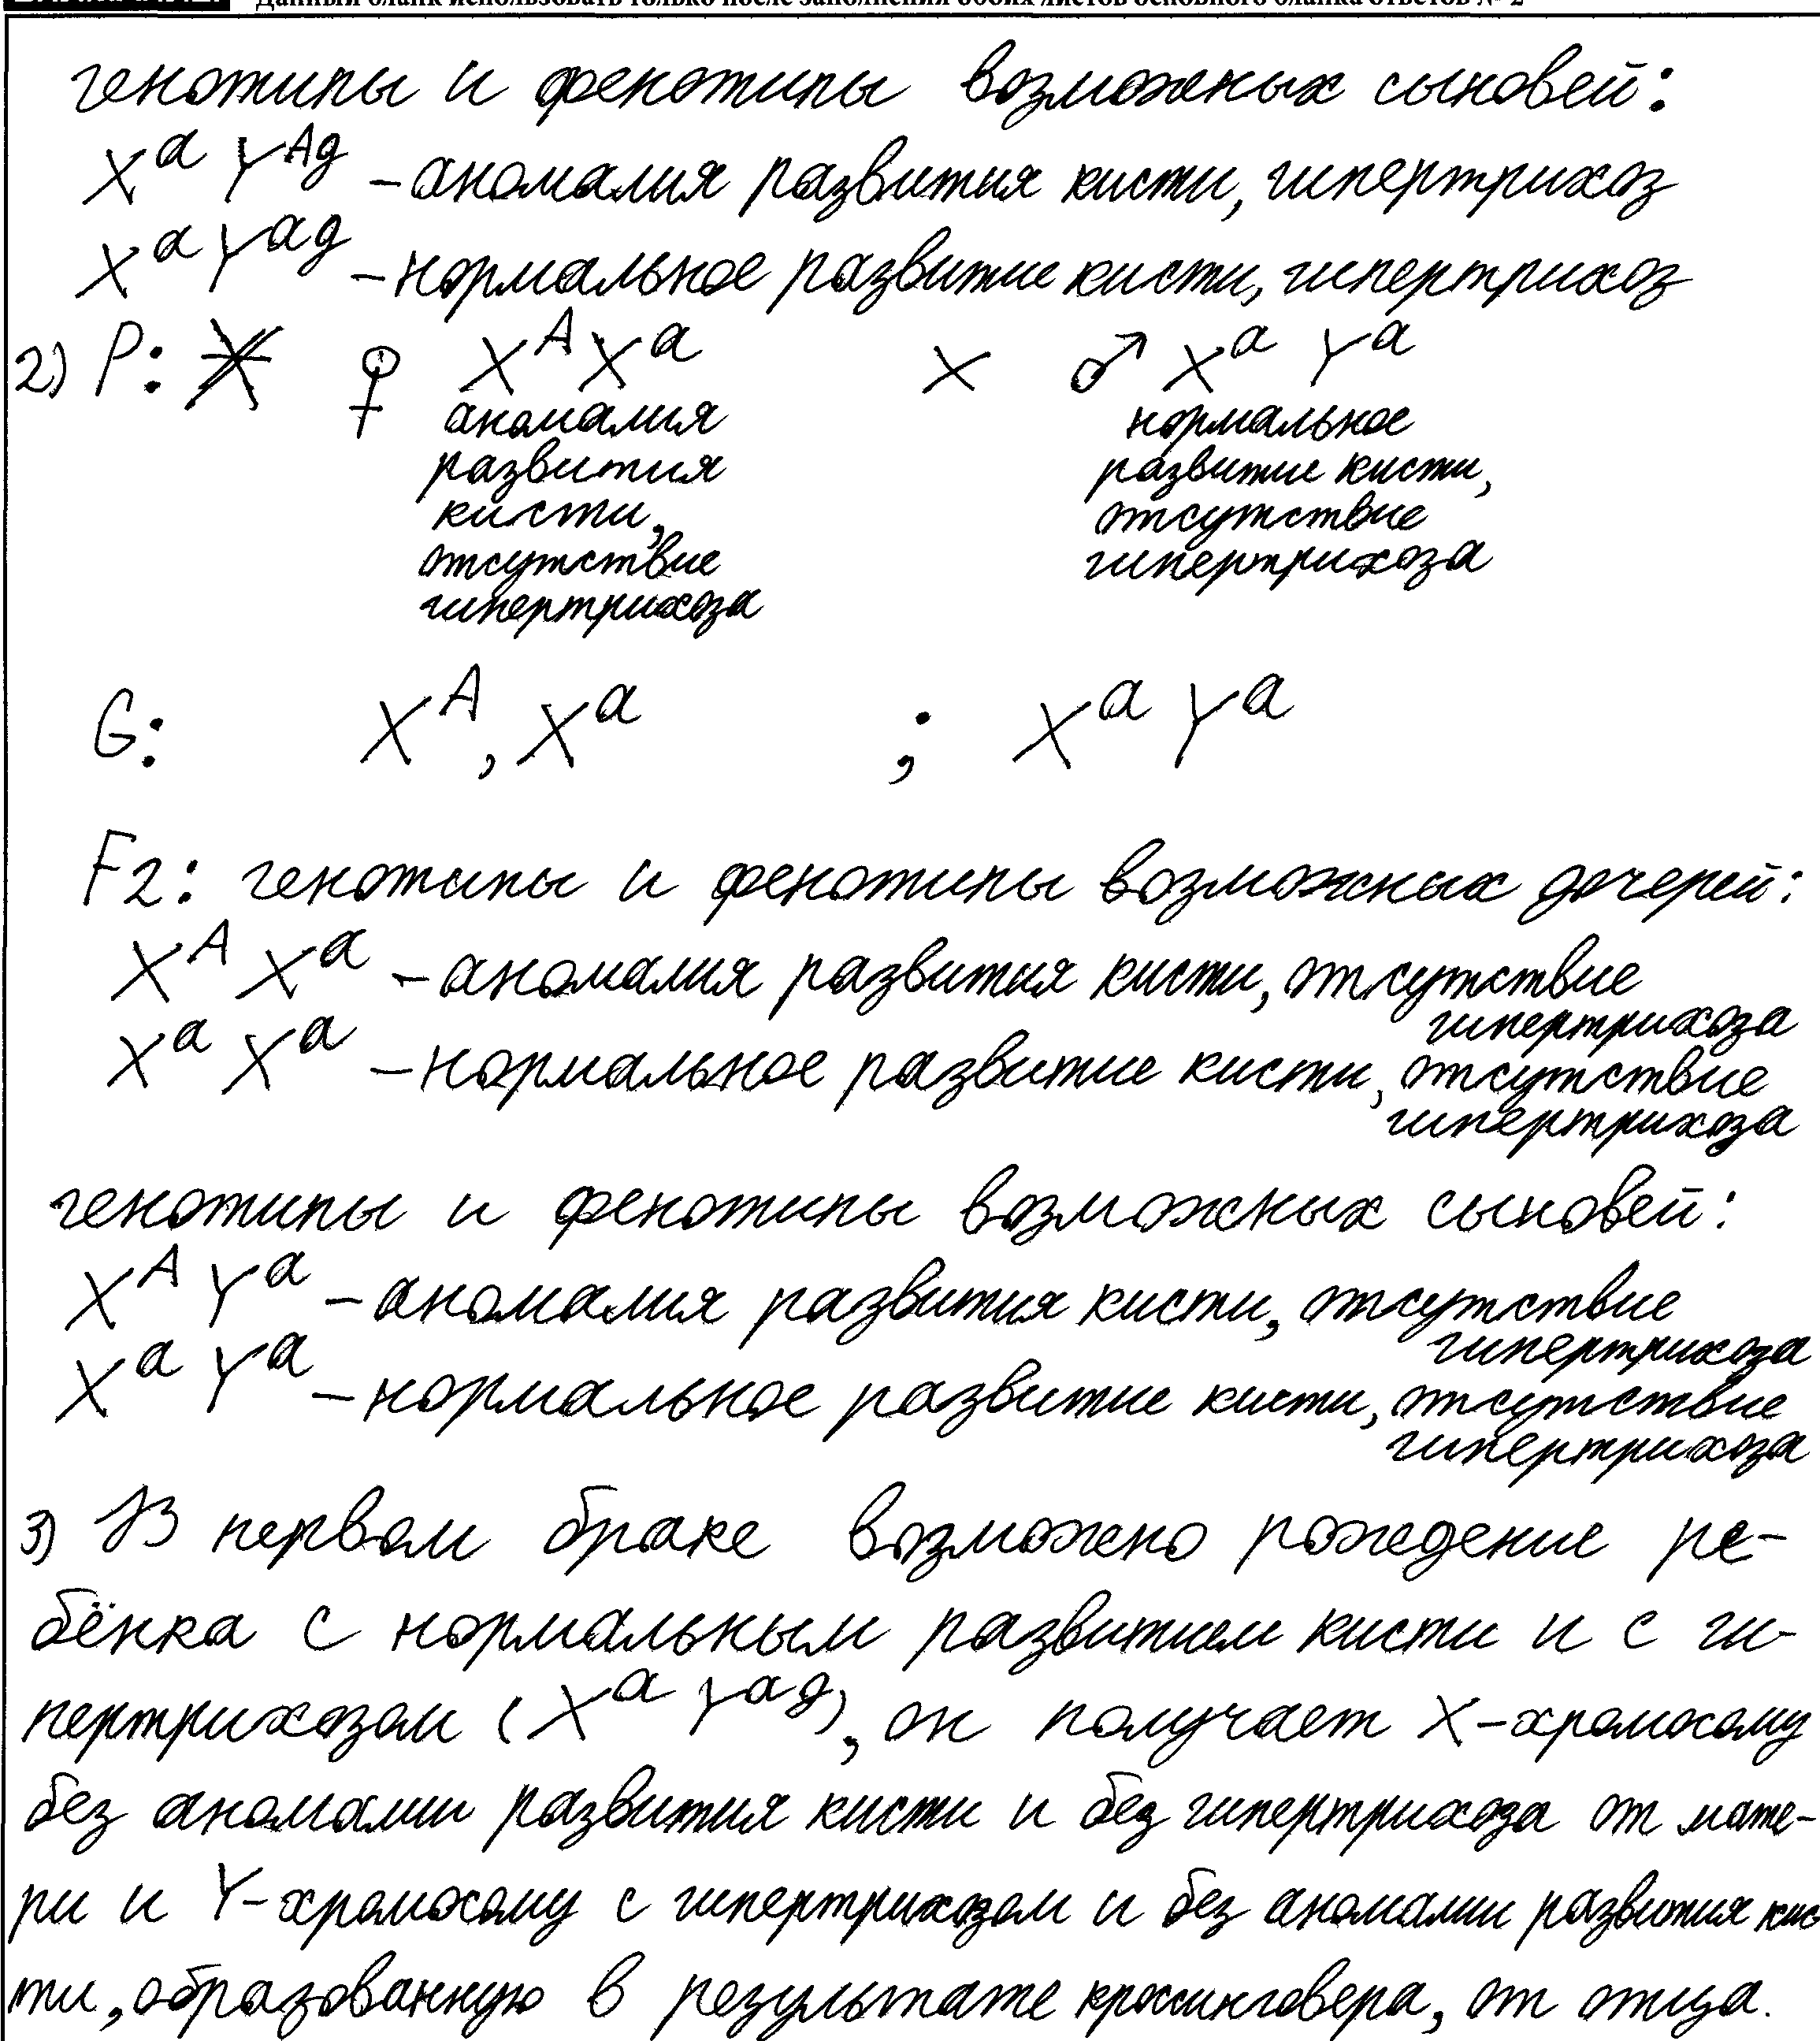 Данный бланк использовать только после заполнения обоих листов основного бланка ответов № 2
генотипы и фенотипы возможных сыновей:
X^a Y^Ag – аномалия развития кисти, гипертрихоз
X^a Y^ag – нормальное развитие кисти, гипертрихоз
2) P: ♀ X^A X^a × ♂ X^a Y^a
аномалия нормальное
развития развитие кисти,
кисти, отсутствие
отсутствие гипертрихоза
гипертрихоза
G: X^A, X^a ; X^a Y^a
F2: генотипы и фенотипы возможных дочерей:
X^A X^a – аномалия развития кисти, отсутствие
гипертрихоза
X^a X^a – нормальное развитие кисти, отсутствие
гипертрихоза
генотипы и фенотипы возможных сыновей:
X^A Y^a – аномалия развития кисти, отсутствие
гипертрихоза
X^a Y^a – нормальное развитие кисти, отсутствие
гипертрихоза
3) В первом браке возможно рождение ре-
бёнка с нормальным развитием кисти и с ги-
пертрихозом (X^a Y^ag), он получает X-хромосому
без аномалии развития кисти и без гипертрихоза от мате-
ри и Y-хромосому с гипертрихозом и без аномалии развития кис
ти, образованную в результате кроссинговера, от отца.